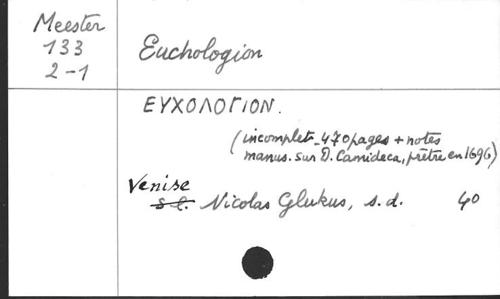 Meester
133
2-1
Euchologion
ΕΥΧΟΛΟΓΙΟΝ.
(incomplet _ 470 pages + notes
manus. sur D. Camideca, prêtre en 1696)
Venise
s.l. Nicolas Glukus, s.d. 40